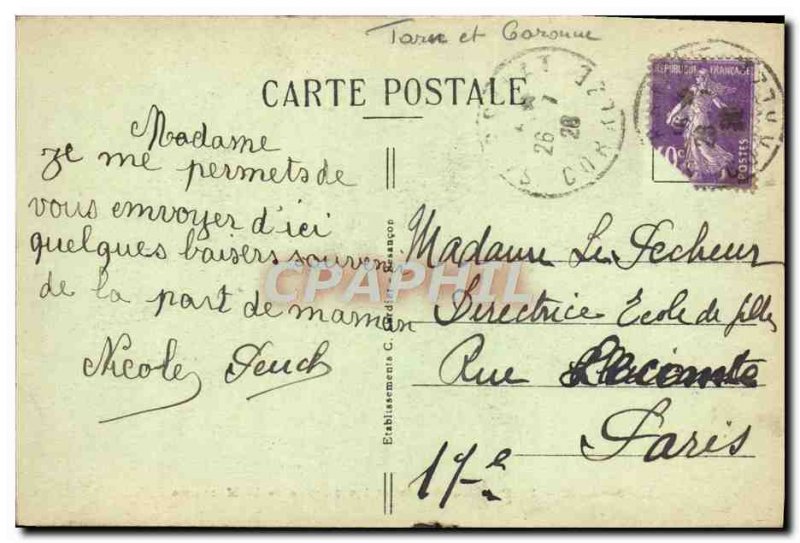 Tarn et Garonne
CARTE POSTALE
REPUBLIQUE FRANCAISE
POSTES
26
28
Madame
Je me permets de
vous emvoyer d'ici
quelques baisers souvenir
de la part de maman
Nicole
Madame Le
Directrice Ecole de filles
Rue
Paris
17e
Etablissements C. Lardier - Besançon
CPAPHIL